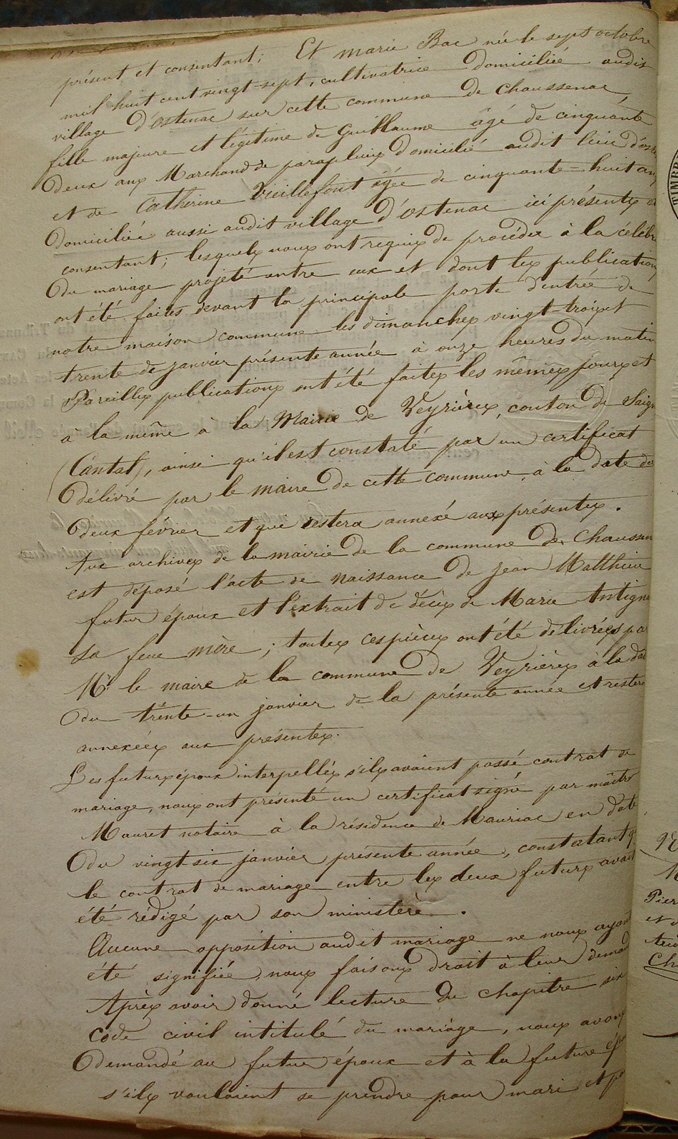 présent et consentant; Et marie Bac née le sept octobre
mil huit cent vingt-sept, cultivatrice domiciliée audit
village d'ostenac sur cette commune de chaussenac,
fille majeure et légitime de Guillaume âgé de cinquante
deux ans Marchand de parapluies domicilié audit lieu
et de Catherine Vieillefont âgée de cinquante-huit ans
domiciliée aussi audit village d'ostenac ici présents et
consentant; lesquels nous ont requis de procéder à la célébr
du mariage projeté entre eux et dont les publications
ont été faites devant la principale porte d'entrée de
notre maison commune les dimanches vingt-trois et
trente de janvier présente année à onze heures du matin
Pareilles publications ont été faites les mêmes jours et
à la même à la Mairie de Veyrières, canton de Saign
(Cantal), ainsi qu'il est constaté par un certificat
délivré par le maire de cette commune à la date du
deux février et que restera annexé aux présentes.
Aux archives de la mairie de la commune de Chaussen
est déposé l'acte de naissance de jean Matthieu
futur époux et l'extrait de décès de Marie Antign
sa feue mère; toutes ces pièces ont été délivrées par
Mr le maire de la commune de Veyrières à la dat
du trente-un janvier de la présente année et rester
annexées aux présentes.
Les futurs époux interpellés s'ils avaient passé contrat de
mariage, nous ont présenté un certificat signé par maître
Mauret notaire à la résidence de Mauriac en date
du vingt six janvier présente année, constatant q
le contrat de mariage entre les deux futurs avait
été rédigé par son ministère.
Aucune opposition audit mariage ne nous ayant
été signifiée nous faisons droit à leur demand
Après avoir donné lecture du chapitre six
code civil intitulé du mariage, nous avons
demandé au futur époux et à la future
s'ils voulaient se prendre pour mari et
Pier
et
Ch